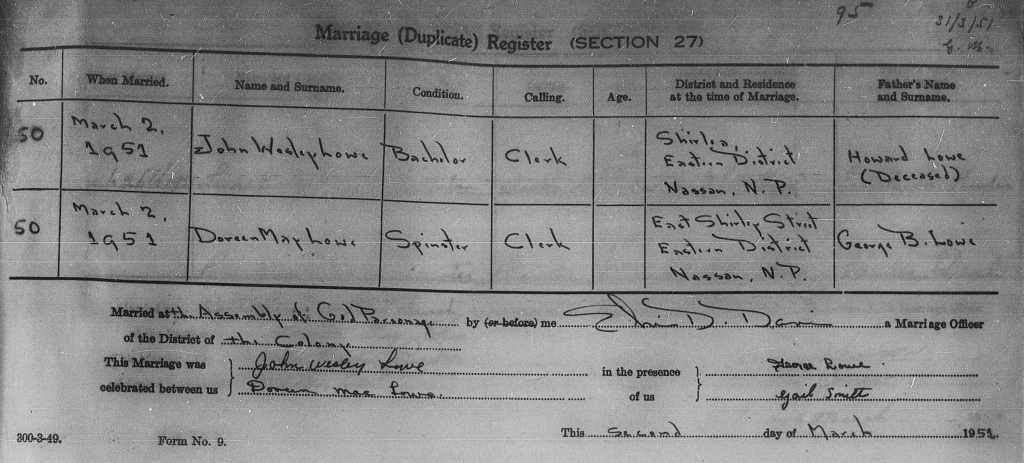 95
31/3/51
Marriage (Duplicate) Register (SECTION 27)
No. When Married. Name and Surname. Condition. Calling. Age. District and Residence at the time of Marriage. Father's Name and Surname.
50 March 2, 1951 John Wesley Lowe Bachelor Clerk Shirlea, Eastern District Nassau, N.P. Howard Lowe (Deceased)
50 March 2, 1951 Doreen May Lowe Spinster Clerk East Shirley Street Eastern District Nassau, N.P. George B. Lowe
Married at the Assembly of God Parsonage by (or before) me D. a Marriage Officer
of the District of the Colony
This Marriage was John Wesley Lowe in the presence Lowe
celebrated between us Doreen Mae Lowe. of us Gail Smith
This Second day of March 1951
300-3-49. Form No. 9.